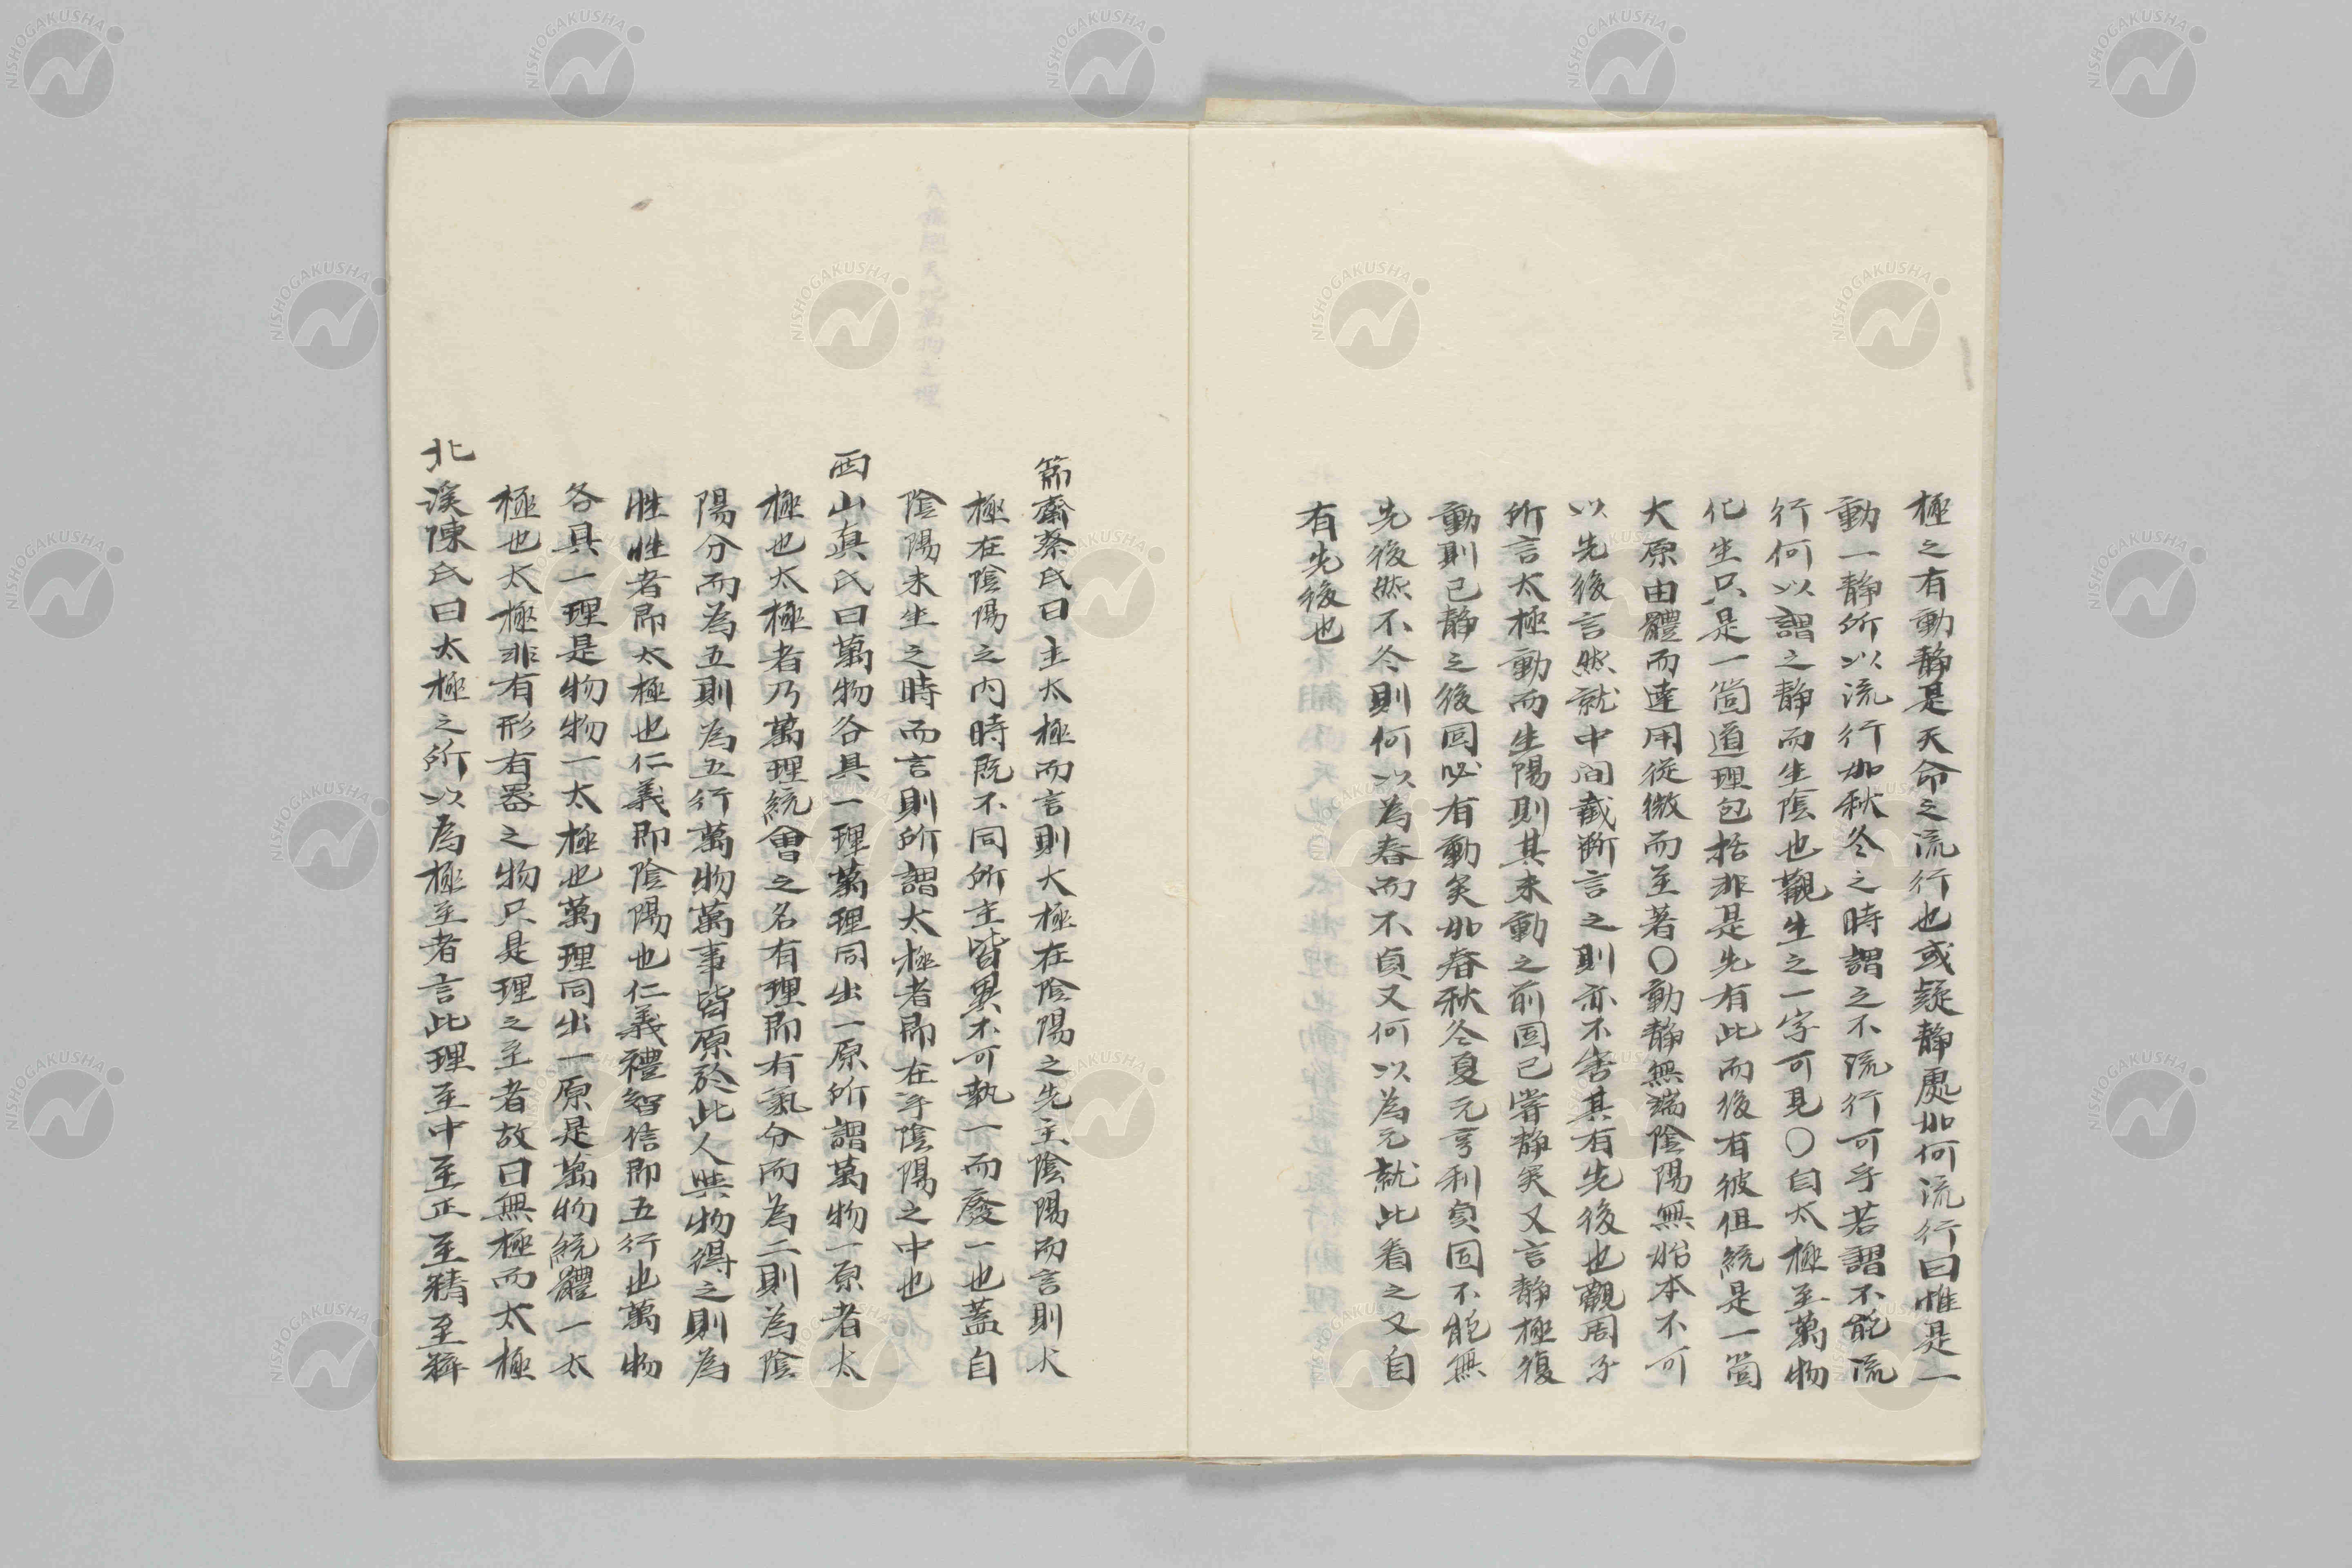 極之有動静是天命之流行也或疑静處如何流行曰惟是一
動一静所以流行如秋冬之時謂之不流行可乎若謂不能流
行何以謂之静而生陰也觀生之一字可見〇自太極至萬物
化生只是一箇道理包括非是先有此而後有彼但統是一箇
大原由體而達用從微而至著〇動静無端陰陽無始本不可
以先後言然就中間截断言之則亦不害其有先後也觀周子
所言太極動而生陽則其未動之前固已嘗静矣又言静極復
動則已静之後固必有動矣如春秋冬夏元亨利貞固不能無
先後然不冬則何以為春而不貞又何以為元就此看之又自
有先後也
節齋蔡氏曰主太極而言則大極在陰陽之先主陰陽而言則大
極在陰陽之内時既不同所主皆異不可執一而廢一也蓋自
陰陽未生之時而言則所謂太極者即在乎陰陽之中也
西山真氏曰萬物各具一理萬理同出一原所謂萬物一原者太
極也太極者乃萬理統會之名有理即有氣分而為二則為陰
陽分而為五則為五行萬物萬事皆原於此人與物得之則為
性性者即太極也仁義即陰陽也仁義禮智信即五行也萬物
各具一理是物物一太極也萬理同出一原是萬物統體一太
極也太極非有形有器之物只是理之至者故曰無極而太極
北溪陳氏曰太極之所以為極至者言此理至中至正至精至粹
NISHOGAKUSHA